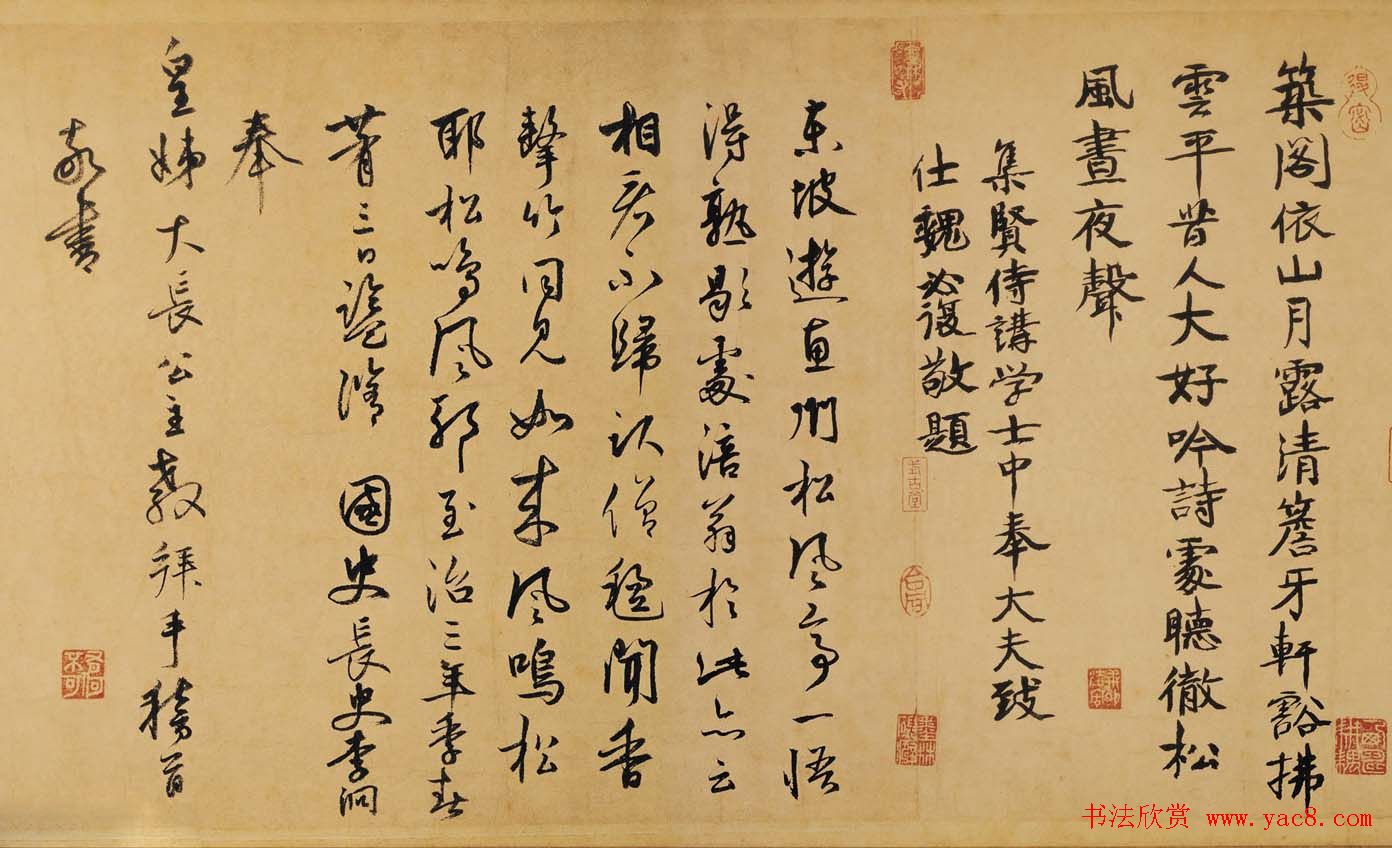 築閣依山月露清簷牙軒豁拂
雲平昔人大好吟詩處聽徹松
風晝夜聲
集賢侍講学士中奉大夫致
仕魏必復敬題
東坡遊惠州松風亭一悟
得熟歇處涪翁於此亦云
相若不歸僧穩聞香
擊竹同見如来風鳴松
耶松鳴風耶至治三年季春
三日 國史長史李泂
奉
皇姊大長公主教拜手稽首
敬書
书法欣赏 www.yac8.com